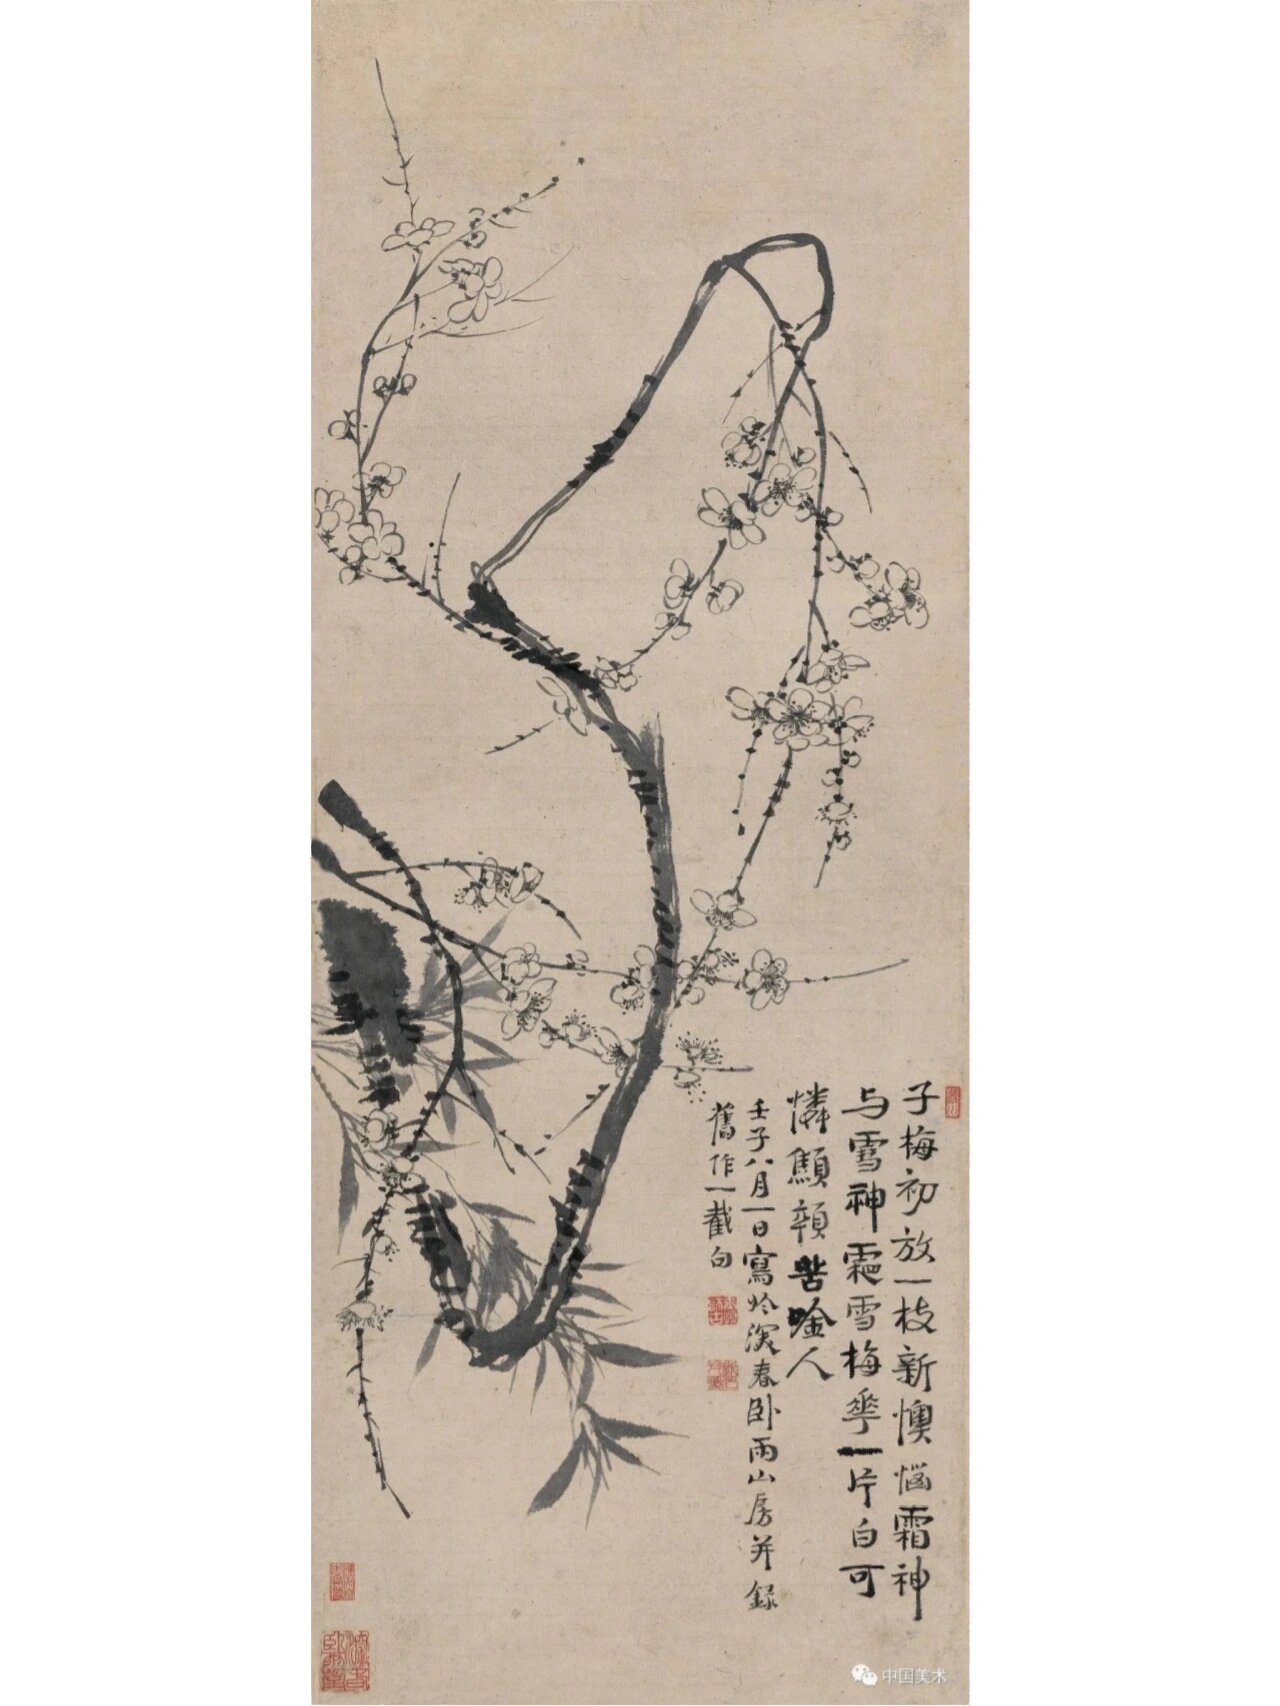 子梅初放一枝新懊惱霜神
与雪神雪梅華一片白可
憐顦顇苦唫人
壬子八月一日寫於春卧雨山房并録
舊作一截句
中国美术